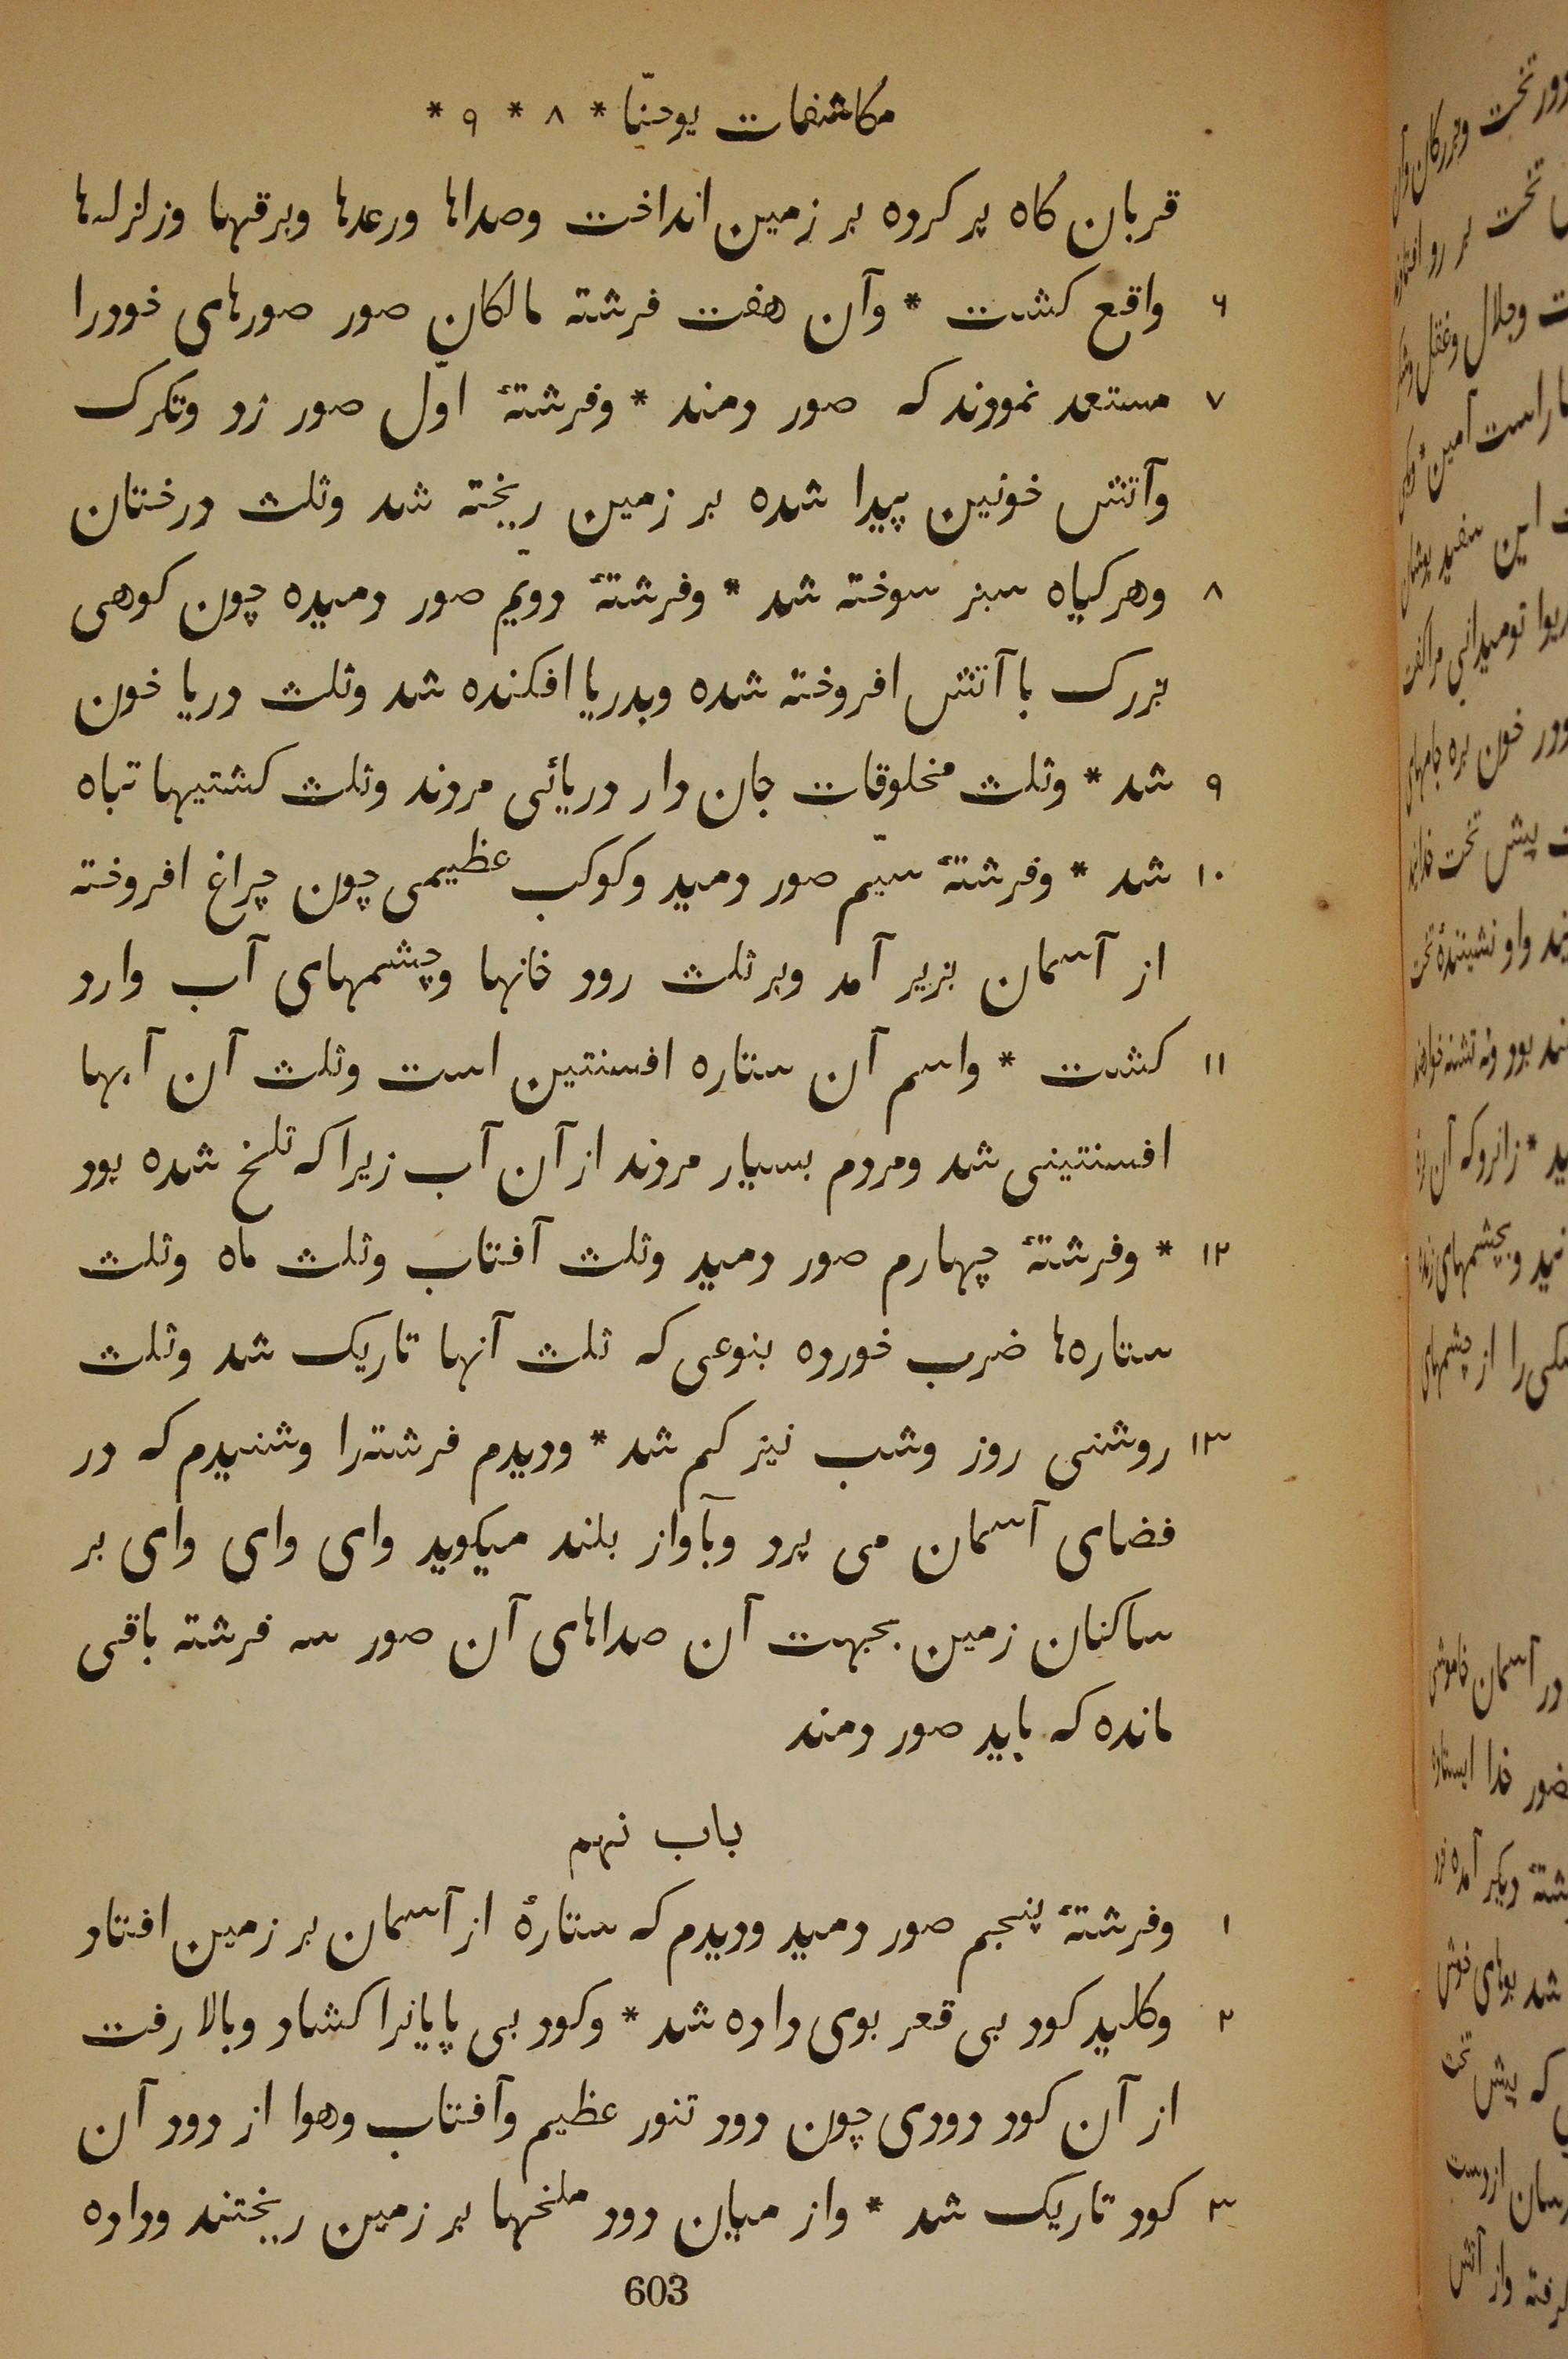 مکاشفات یوحنّا * ۸ * ۹ *
قربان کاه پر کرده بر زمین انداخت وصداها ورعدها وبرقها وزلزله‌ها
۶ واقع کشت * وآن هفت فرشته مالکان صور صورهای خودرا
۷ مستعد نمودند که صور دمند * وفرشتهٔ اوّل صور زد وتکرک
وآتش خونین پیدا شده بر زمین ریخته شد وثلث درختان
۸ وهر کیاه سبز سوخته شد * وفرشتهٔ دویّم صور دمیده چون کوهی
بزرک با آتش افروخته شده وبدریا افکنده شد وثلث دریا خون
۹ شد * وثلث مخلوقات جان دار دریائی مردند وثلث کشتیها تباه
۱۰ شد * وفرشتهٔ سیّم صور دمید وکوکب عظیمی چون چراغ افروخته
از آسمان بزیر آمد وبر ثلث رود خانها وچشمهای آب وارد
۱۱ کشت * واسم آن ستاره افسنتین است وثلث آن آبها
افسنتینی شد ومردم بسیار مردند از آن آب زیرا که تلخ شده بود
۱۲ * وفرشتهٔ چهارم صور دمید وثلث آفتاب وثلث ماه وثلث
ستاره‌ها ضرب خورده بنوعی که ثلث آنها تاریک شد وثلث
۱۳ روشنی روز وشب نیز کم شد * ودیدم فرشته‌را وشنیدم که در
فضای آسمان می پرد وبآواز بلند میکوید وای وای وای بر
ساکنان زمین بجهت آن صداهای آن صور سه فرشته باقی
مانده که باید صور دمند
باب نهم
۱ وفرشتهٔ پنجم صور دمید ودیدم که ستارهٔ از آسمان بر زمین افتاد
۲ وکلید کود بی قعر بوی داده شد * وکود بی پایانرا کشاد وبالا رفت
از آن کود دودی چون دود تنور عظیم وآفتاب وهوا از دود آن
۳ کود تاریک شد * واز میان دود ملخها بر زمین ریختند وداده
603